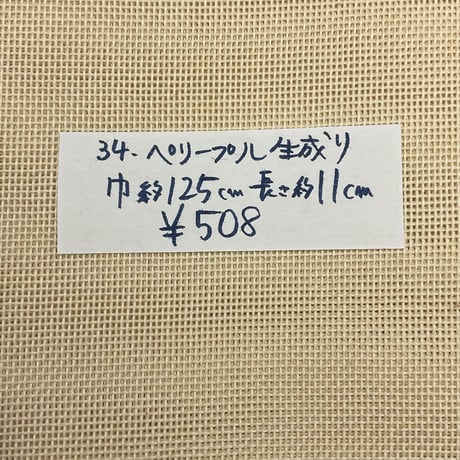 34.ペリープル生成り
巾約125cm長さ約11cm
¥508